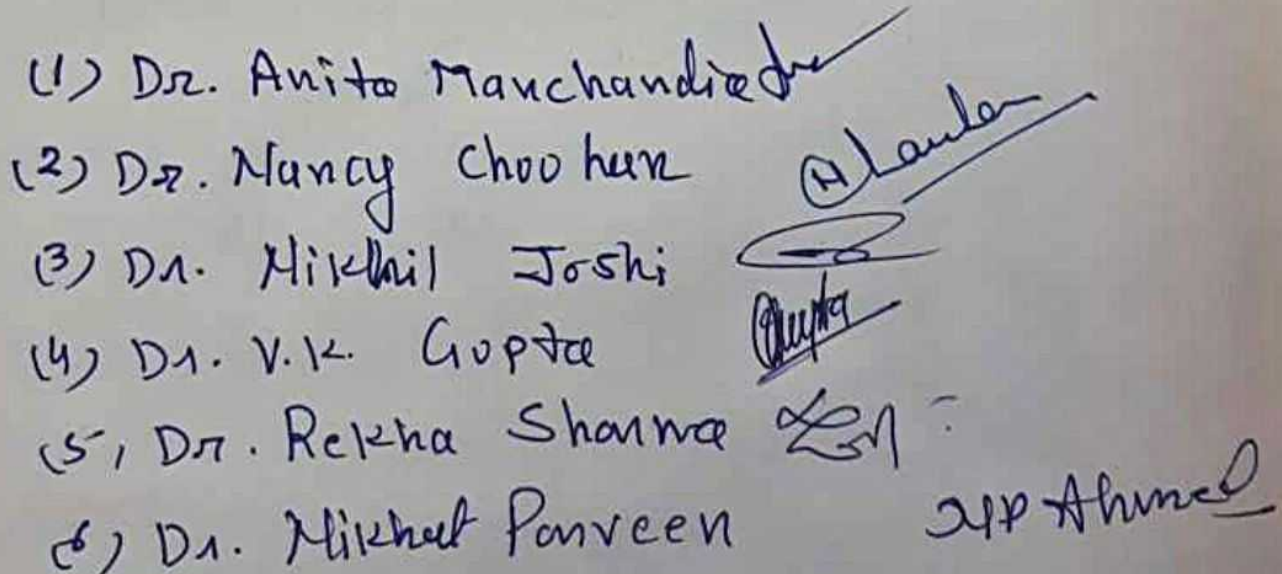 (1) Dr. Anita Manchandia
(2) Dr. Nancy Choohan
(3) Dr. Nikhil Joshi
(4) Dr. V.K. Gupta Gupta
(5) Dr. Rekha Sharma
(6) Dr. Nikhat Parveen Ahmed